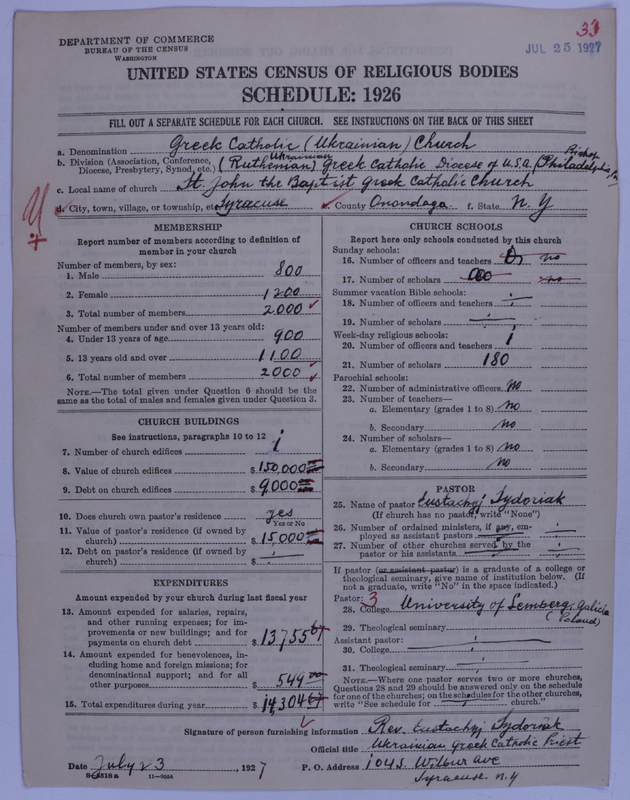 33
JUL 25 1927
DEPARTMENT OF COMMERCE
BUREAU OF THE CENSUS
WASHINGTON
UNITED STATES CENSUS OF RELIGIOUS BODIES
SCHEDULE: 1926
FILL OUT A SEPARATE SCHEDULE FOR EACH CHURCH. SEE INSTRUCTIONS ON THE BACK OF THIS SHEET
a. Denomination Greek Catholic (Ukrainian) Church
b. Division (Association, Conference, Diocese, Presbytery, Synod, etc.) (Ruthenian) Ukrainian Greek Catholic Diocese of U.S.A. (Bishop Philadelphia Pa
c. Local name of church St. John the Baptist Greek Catholic Church
d. City, town, village, or township, etc. Syracuse e. County Onondaga f. State N. Y
MEMBERSHIP
Report number of members according to definition of member in your church
Number of members, by sex:
1. Male 800
2. Female 1200
3. Total number of members 2000
Number of members under and over 13 years old:
4. Under 13 years of age 900
5. 13 years old and over 1100
6. Total number of members 2000
NOTE.—The total given under Question 6 should be the same as the total of males and females given under Question 3.
CHURCH BUILDINGS
See instructions, paragraphs 10 to 12
7. Number of church edifices 1
8. Value of church edifices $150,000
9. Debt on church edifices $9000
10. Does church own pastor's residence yes
Yes or No
11. Value of pastor's residence (if owned by church) $15,000
12. Debt on pastor's residence (if owned by church) $
EXPENDITURES
Amount expended by your church during last fiscal year
13. Amount expended for salaries, repairs, and other running expenses; for improvements or new buildings; and for payments on church debt $13,755 67
14. Amount expended for benevolences, including home and foreign missions; for denominational support; and for all other purposes $549 00
15. Total expenditures during year $14,304 67
CHURCH SCHOOLS
Report here only schools conducted by this church
Sunday schools:
16. Number of officers and teachers no
17. Number of scholars no
Summer vacation Bible schools:
18. Number of officers and teachers
19. Number of scholars
Week-day religious schools:
20. Number of officers and teachers 1
21. Number of scholars 180
Parochial schools:
22. Number of administrative officers no
23. Number of teachers—
a. Elementary (grades 1 to 8) no
b. Secondary no
24. Number of scholars—
a. Elementary (grades 1 to 8) no
b. Secondary no
PASTOR
25. Name of pastor Eustachyj Sydoriak
(If church has no pastor, write "None")
26. Number of ordained ministers, if any, employed as assistant pastors
27. Number of other churches served by the pastor or his assistants
If pastor (or assistant pastor) is a graduate of a college or theological seminary, give name of institution below. (If not a graduate, write "No" in the space indicated.)
Pastor: 3
28. College University of Lemberg, Galicia (Poland)
29. Theological seminary
Assistant pastor:
30. College
31. Theological seminary
NOTE.—Where one pastor serves two or more churches, Questions 28 and 29 should be answered only on the schedule for one of the churches; on the schedules for the other churches, write "See schedule for church."
Signature of person furnishing information Rev. Eustachyj Sydoriak
Official title Ukrainian Greek Catholic Priest
Date July 23, 1927 P. O. Address 104 S. Wilbur ave
Syracuse N.Y
11—9054